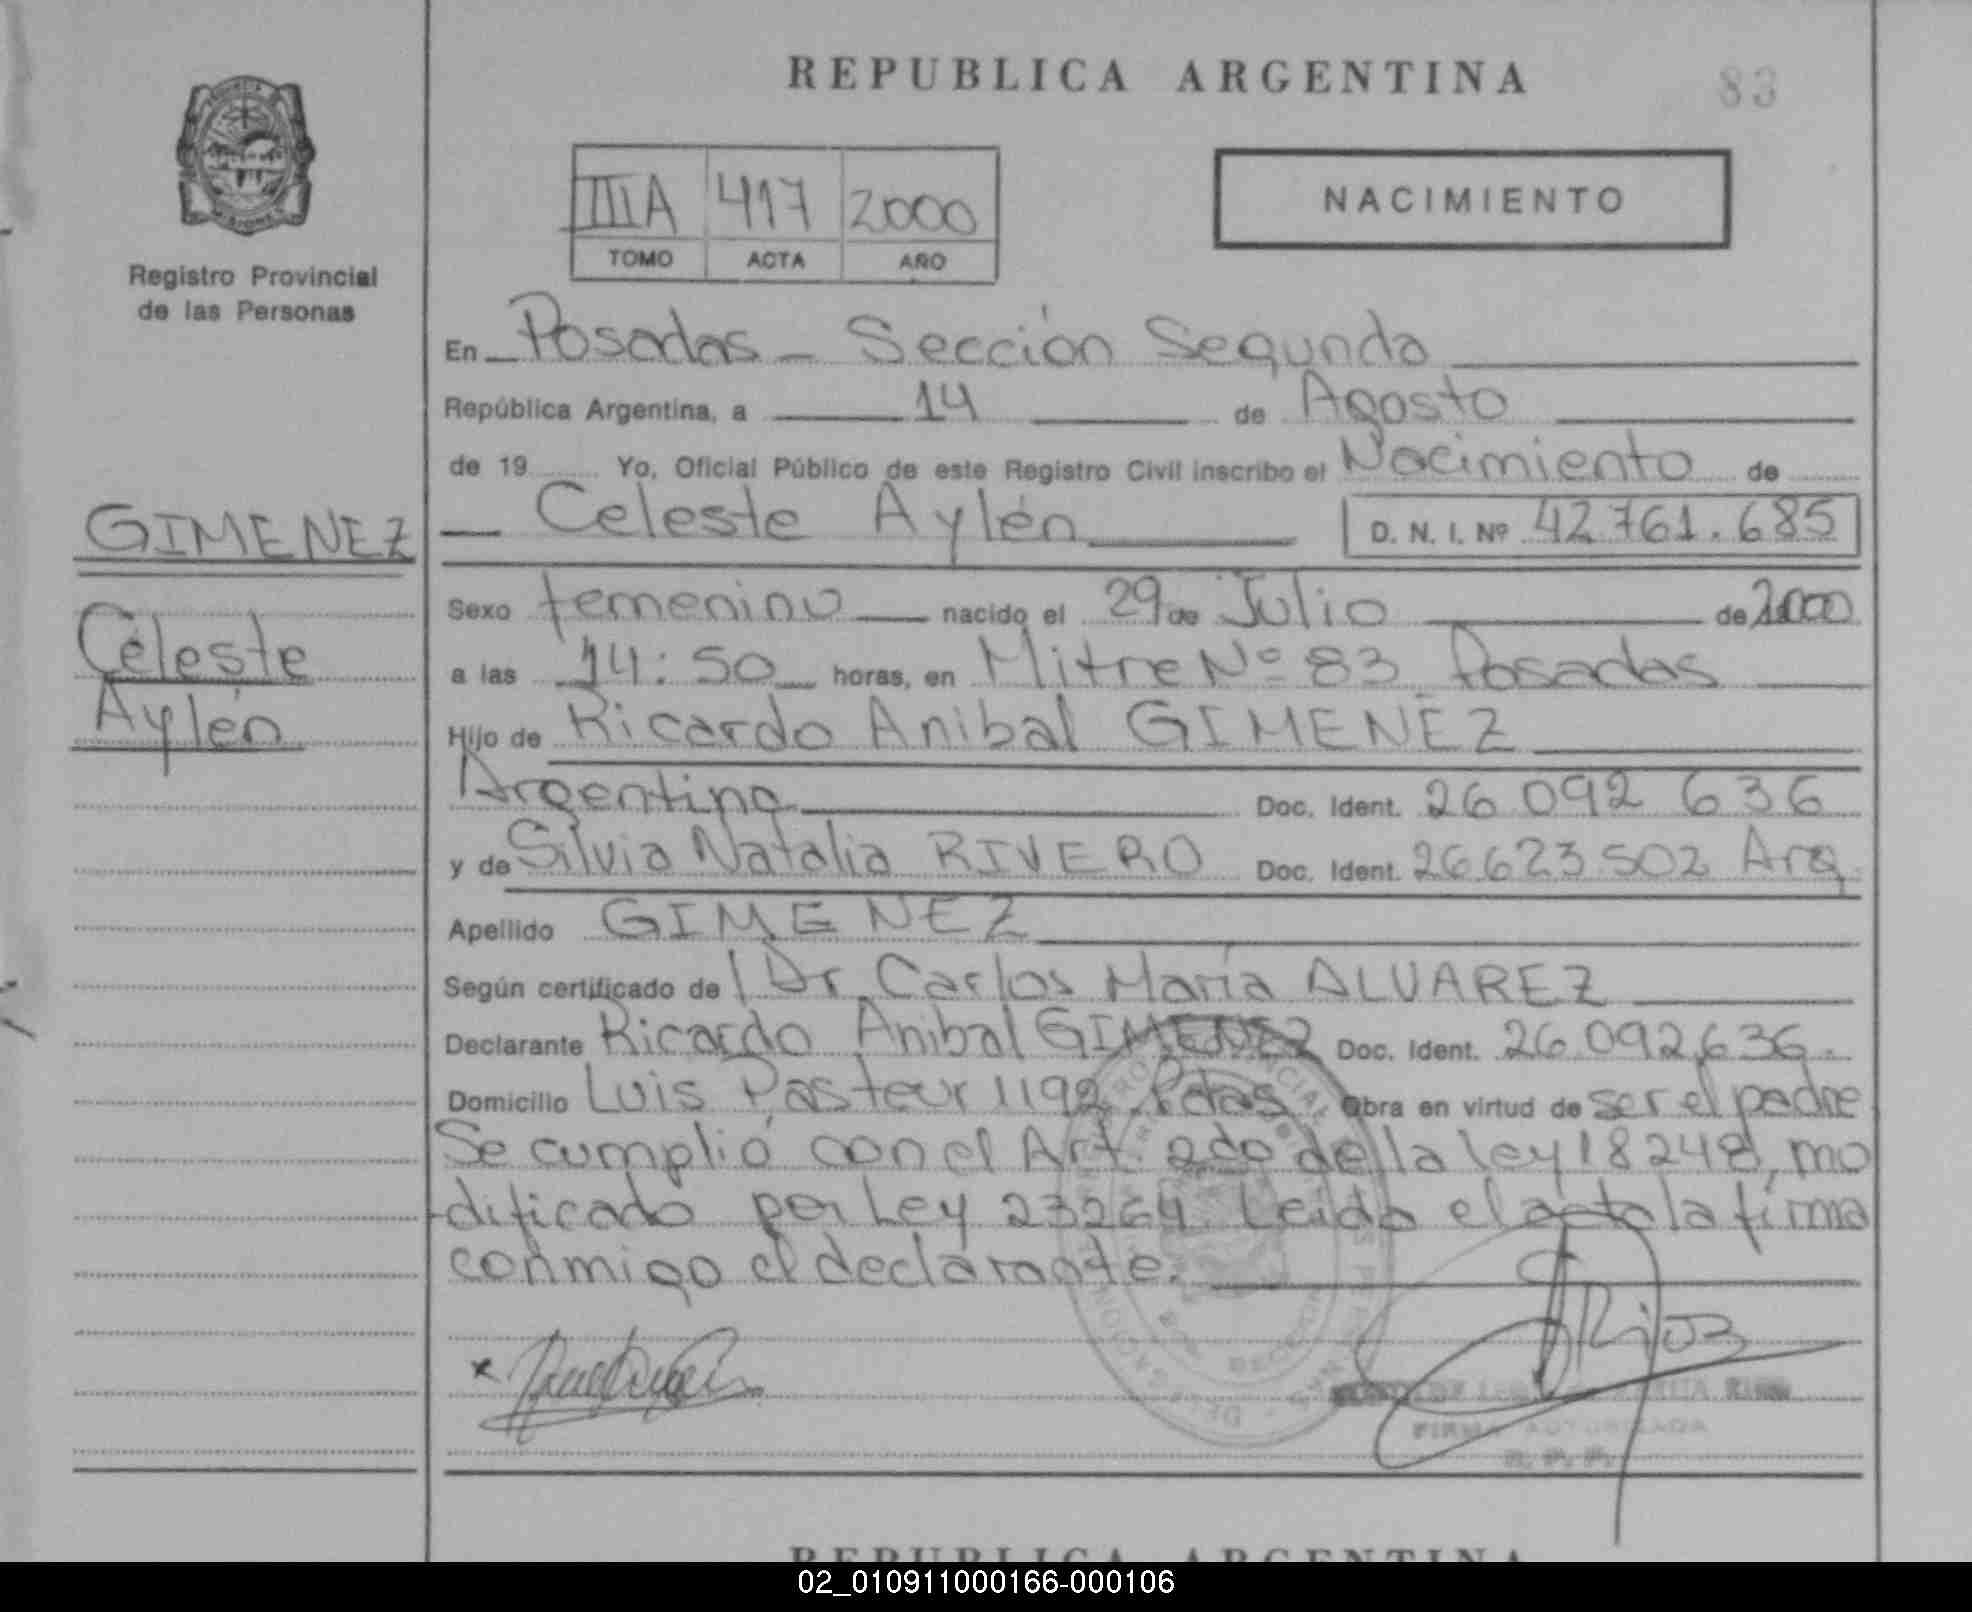 REPUBLICA ARGENTINA
83
Registro Provincial
de las Personas
IIIA 417 2000
TOMO ACTA AÑO
NACIMIENTO
En Posadas - Sección Segunda
República Argentina, a 14 de Agosto
de 19 Yo, Oficial Público de este Registro Civil inscribo el Nacimiento de
Celeste Aylén D. N. I. Nº 42.761.685
GIMENEZ
Celeste
Aylén
Sexo femenino nacido el 29 de Julio de 2000
a las 14:50 horas, en Mitre Nº 83 Posadas
Hijo de Ricardo Anibal GIMENEZ
Argentino Doc. Ident. 26 092 636
y de Silvia Natalia RIVERO Doc. Ident. 26623502 Arg.
Apellido GIMENEZ
Según certificado de Dr. Carlos María ALVAREZ
Declarante Ricardo Anibal GIMENEZ Doc. Ident. 26.092.636.
Domicilio Luis Pasteur 1192 Pdas. Obra en virtud de ser el padre
Se cumplió con el Art. 2do de la ley 18248, mo
dificado por Ley 23264. Leida el acta la firma
conmigo el declarante.
Rios
FIRMA AUTORIZADA
R. P. P.
REPUBLICA ARGENTINA
02_010911000166-000106